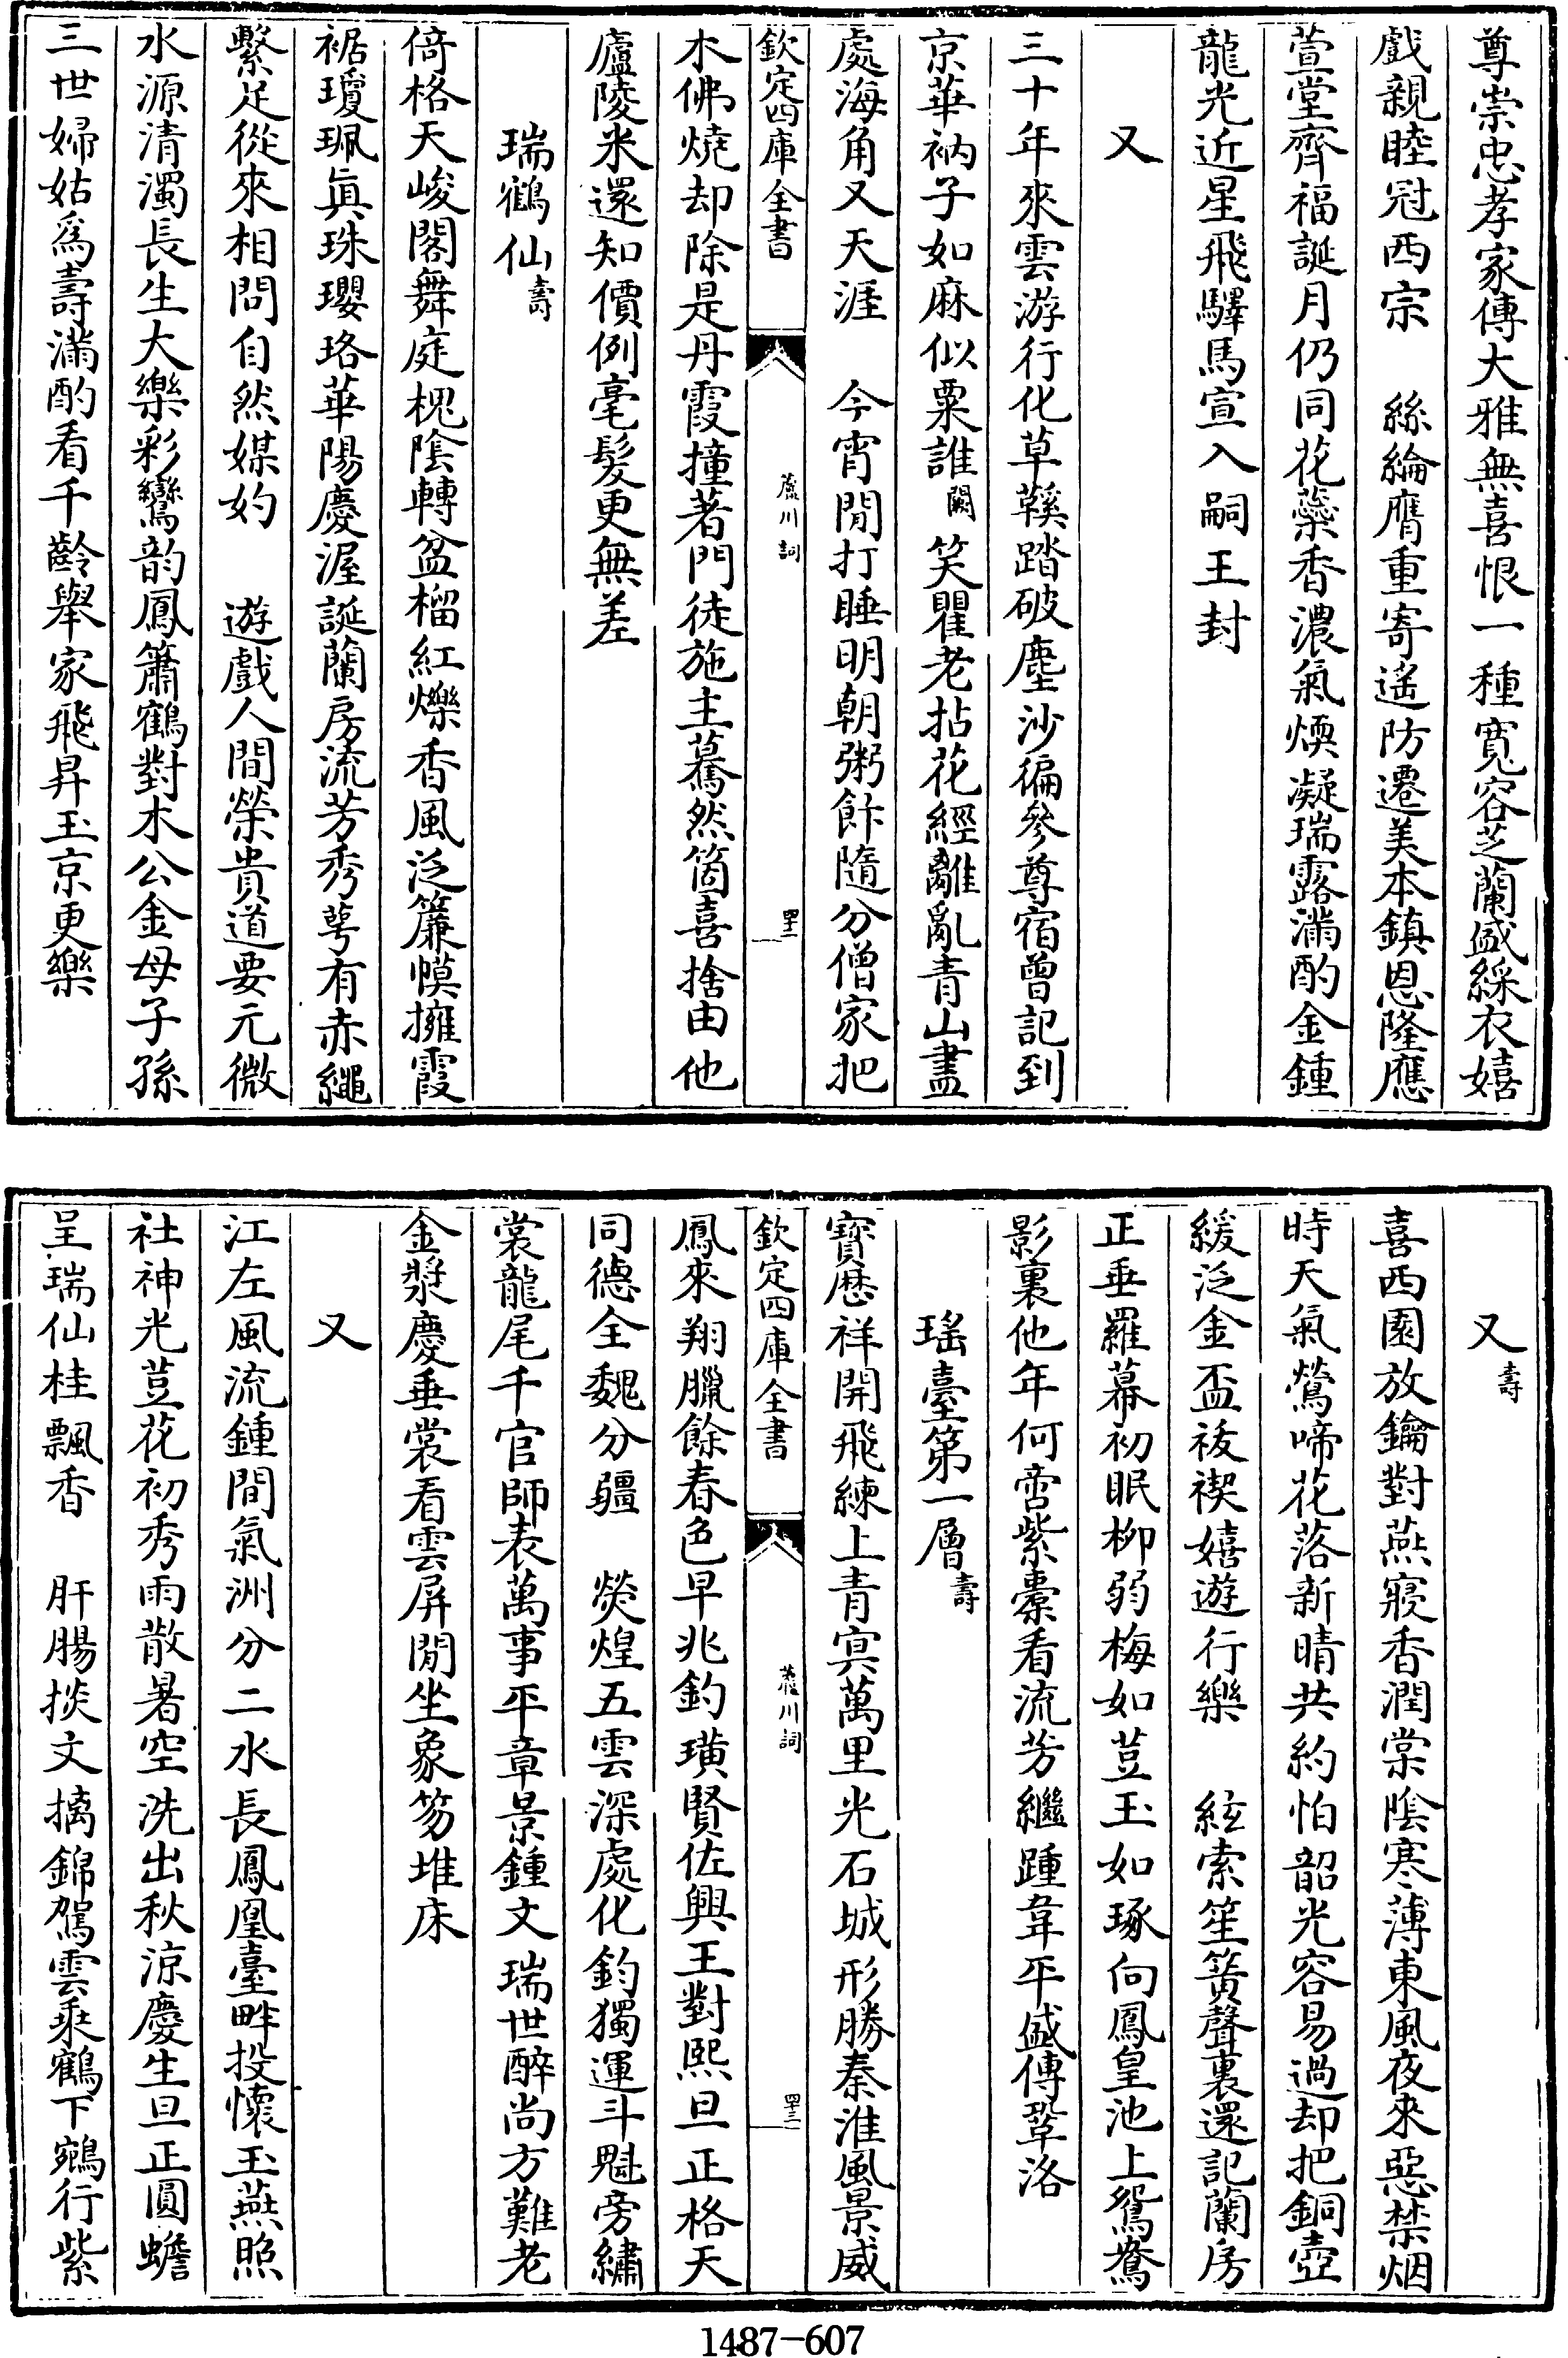 尊崇忠孝家傳大雅無喜恨一種寛容芝蘭盛綵衣嬉
戲親睦冠西宗　絲綸膺重寄遥防遷美本鎮恩隆應
萱堂齊福誕月仍同花蘂香濃氣煗凝瑞露滿酌金鍾
龍光近星飛驛馬宣入嗣王封
又
三十年來雲游行化草鞵踏破塵沙徧參尊宿曾記到
京華衲子如麻似粟誰闕笑瞿老拈花經離亂青山盡
處海角又天涯　今宵閒打睡明朝粥飰隨分僧家把
欽定四庫全書　蘆川詞　四十二
木佛燒却除是丹霞撞著門徒施主驀然箇喜捨由他
廬陵米還知價例毫髪更無差
瑞鶴仙壽
倚格天峻閣舞庭槐陰轉盆榴紅爍香風泛簾幙擁霞
裾瓊珮真珠瓔珞華陽慶渥誕蘭房流芳秀萼有赤繩
繫足從來相問自然媒妁　遊戲人間榮貴道要元微
水源清濁長生大樂彩鸞韵鳳簫鶴對木公金母子孫
三世婦姑爲壽滿酌看千齡舉家飛昇玉京更樂
又壽
喜西園放鑰對燕寢香潤棠陰寒薄東風夜來惡禁烟
時天氣鶯啼花落新晴共約怕韶光容易過却把銅壺
緩泛金盃祓禊嬉遊行樂　絃索笙簧聲裏還記蘭房
正垂羅幕初眠柳弱梅如荳玉如琢向鳳皇池上鴛鴦
影裏他年何啻紫橐看流芳繼踵韋平盛傳鞏洛
瑤臺第一層壽
寶厯祥開飛練上青㝠萬里光石城形勝秦淮風景威
欽定四庫全書　蘆川詞　四十三
鳳來翔臘餘春色早兆釣璜賢佐興王對熙旦正格天
同德全魏分疆　熒煌五雲深處化鈞獨運斗魁旁繡
裳龍尾千官師表萬事平章景鍾文瑞世醉尚方難老
金漿慶垂裳看雲屏閒坐象笏堆床
又
江左風流鍾間氣洲分二水長鳳凰臺畔投懷玉燕照
社神光荳花初秀雨散暑空洗出秋涼慶生旦正圓蟾
呈瑞仙桂飄香　肝腸掞文摛錦駕雲乘鶴下鵷行紫
1487-607